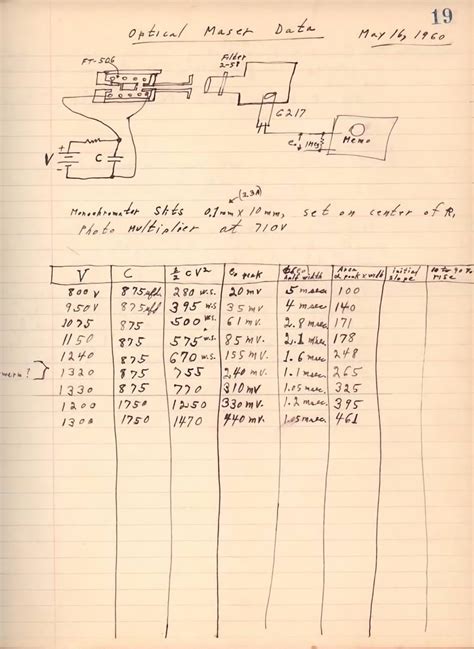 19
Optical Maser Data May 16, 1960
FT-506
Filter
2-58
C217
V
C
e₀
1Meg
Memo
(2.3A)
Monochromator Slits 0.1mm x 10mm, set on center of R₁
Photo Multiplier at 710V
V C ½CV² e₀ peak half width Area peak x width initial slope 10 to 90% rise
800V 875mfd 280 W.S. 20mv 5 msec 100
950V 875mfd 395 W.S 35mv 4 msec 140
1075 875 500 W.S. 61mv. 2.8 msec 171
1150 875 575 W.S. 85mv. 2.1 msec 178
1240 875 670 W.S. 155mv. 1.6 msec 248
1320 875 755 240mv. 1.1 msec 265
1330 875 770 310mv 1.05 msec 325
1200 1750 1250 330mv. 1.2 msec. 395
1300 1750 1470 440mv. 1.05 msec 461